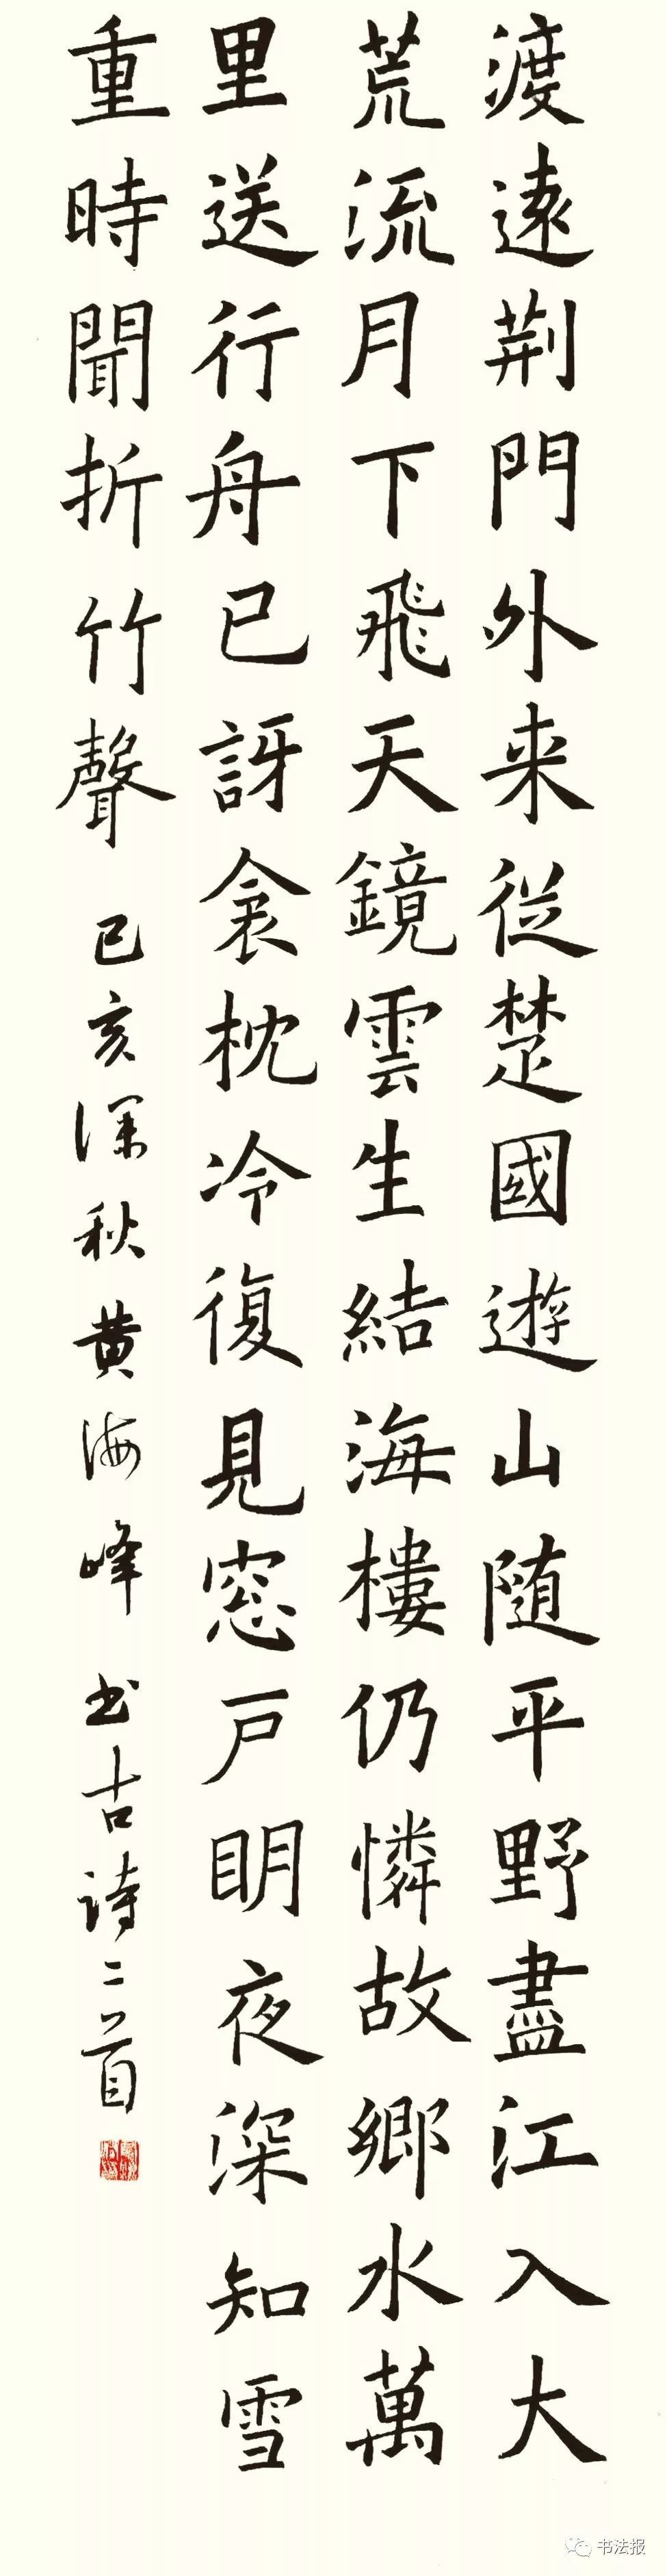 渡遠荆門外来從楚國遊山随平野盡江入大
荒流月下飛天鏡雲生結海樓仍憐故鄉水萬
里送行舟已訝衾枕冷復見窓戸明夜深知雪
重時聞折竹聲 己亥深秋黄海峰 书古诗二首
书法报